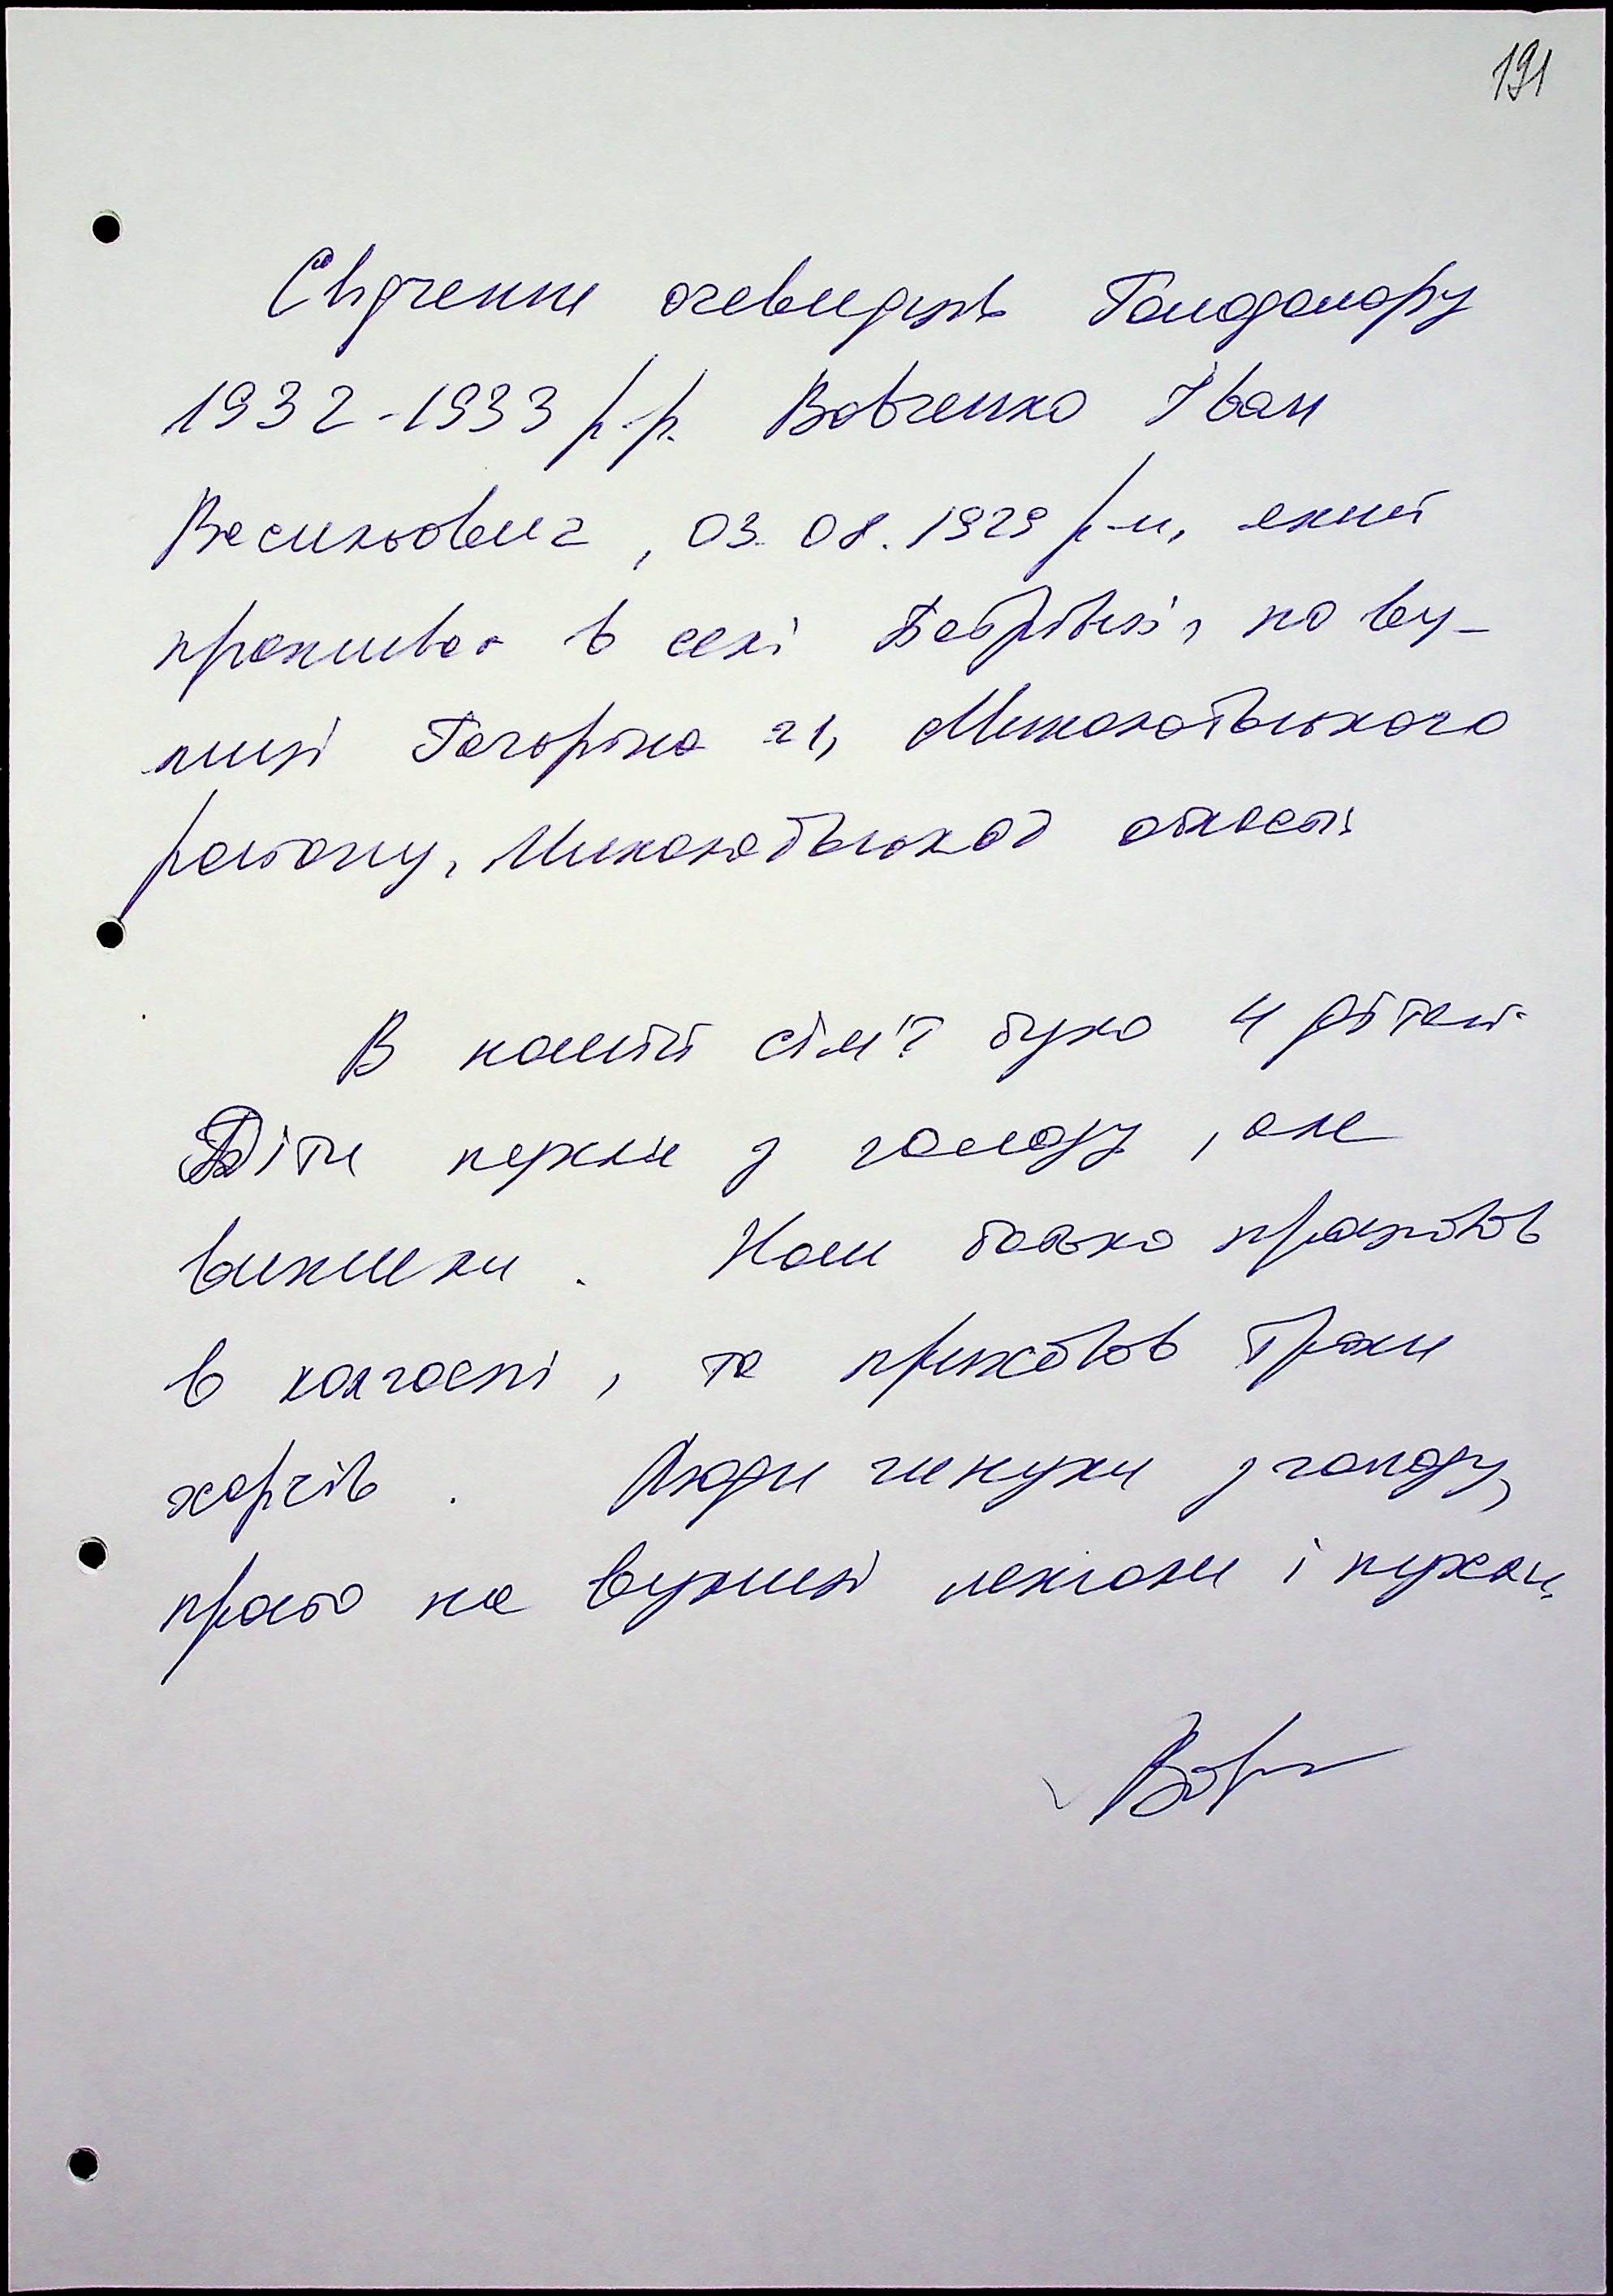 191
Свідчення очевидців Голодомору
1932-1933 р.р. Вовченко Іван
Васильович, 03.08.1929 р-н, який
проживає в селі Бабрівці, по ву-
лиці Гагаріна 21, Миколаївського
району, Миколаївської області
В нашій сім'ї було 4 дітей.
Діти пухли з голоду, але
вижили. Наш батько працював
в колгоспі, та приносив трохи
харчів. Люди гинули з голоду,
просто на вулиці лежали і пухли.